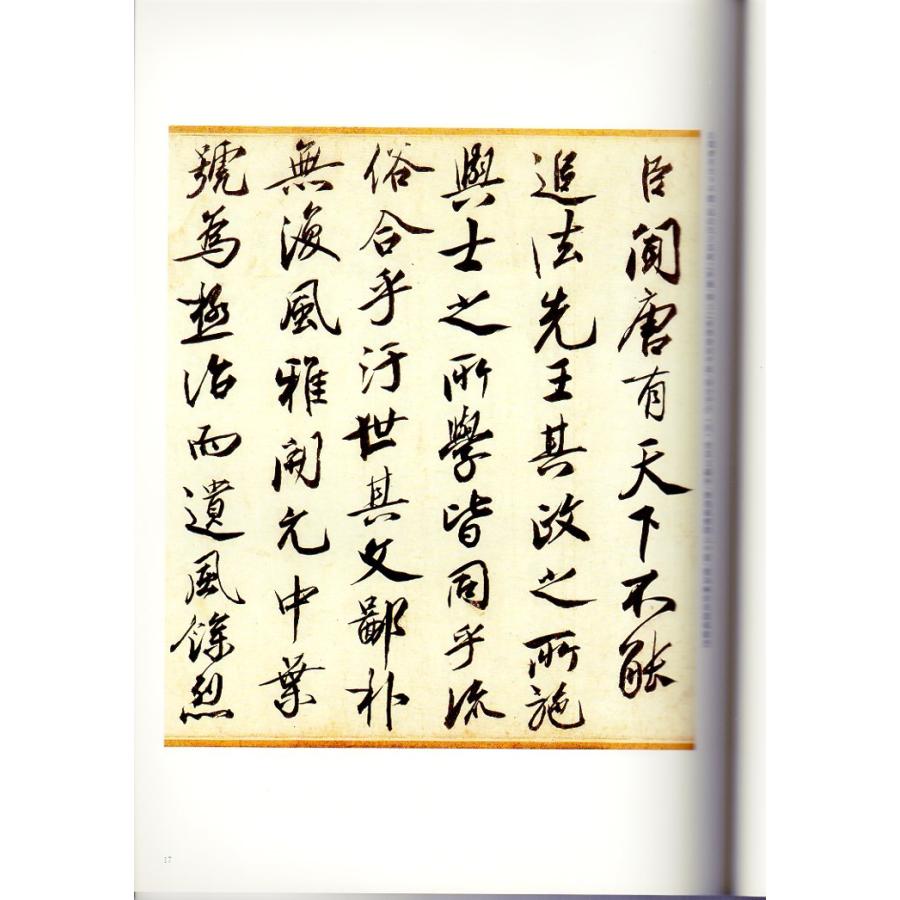 臣聞唐有天下不能
追法先王其政之所施
與士之所學皆同乎流
俗合乎汙世其文鄙朴
無復風雅開元中葉
號為極治而遺風餘烈
17